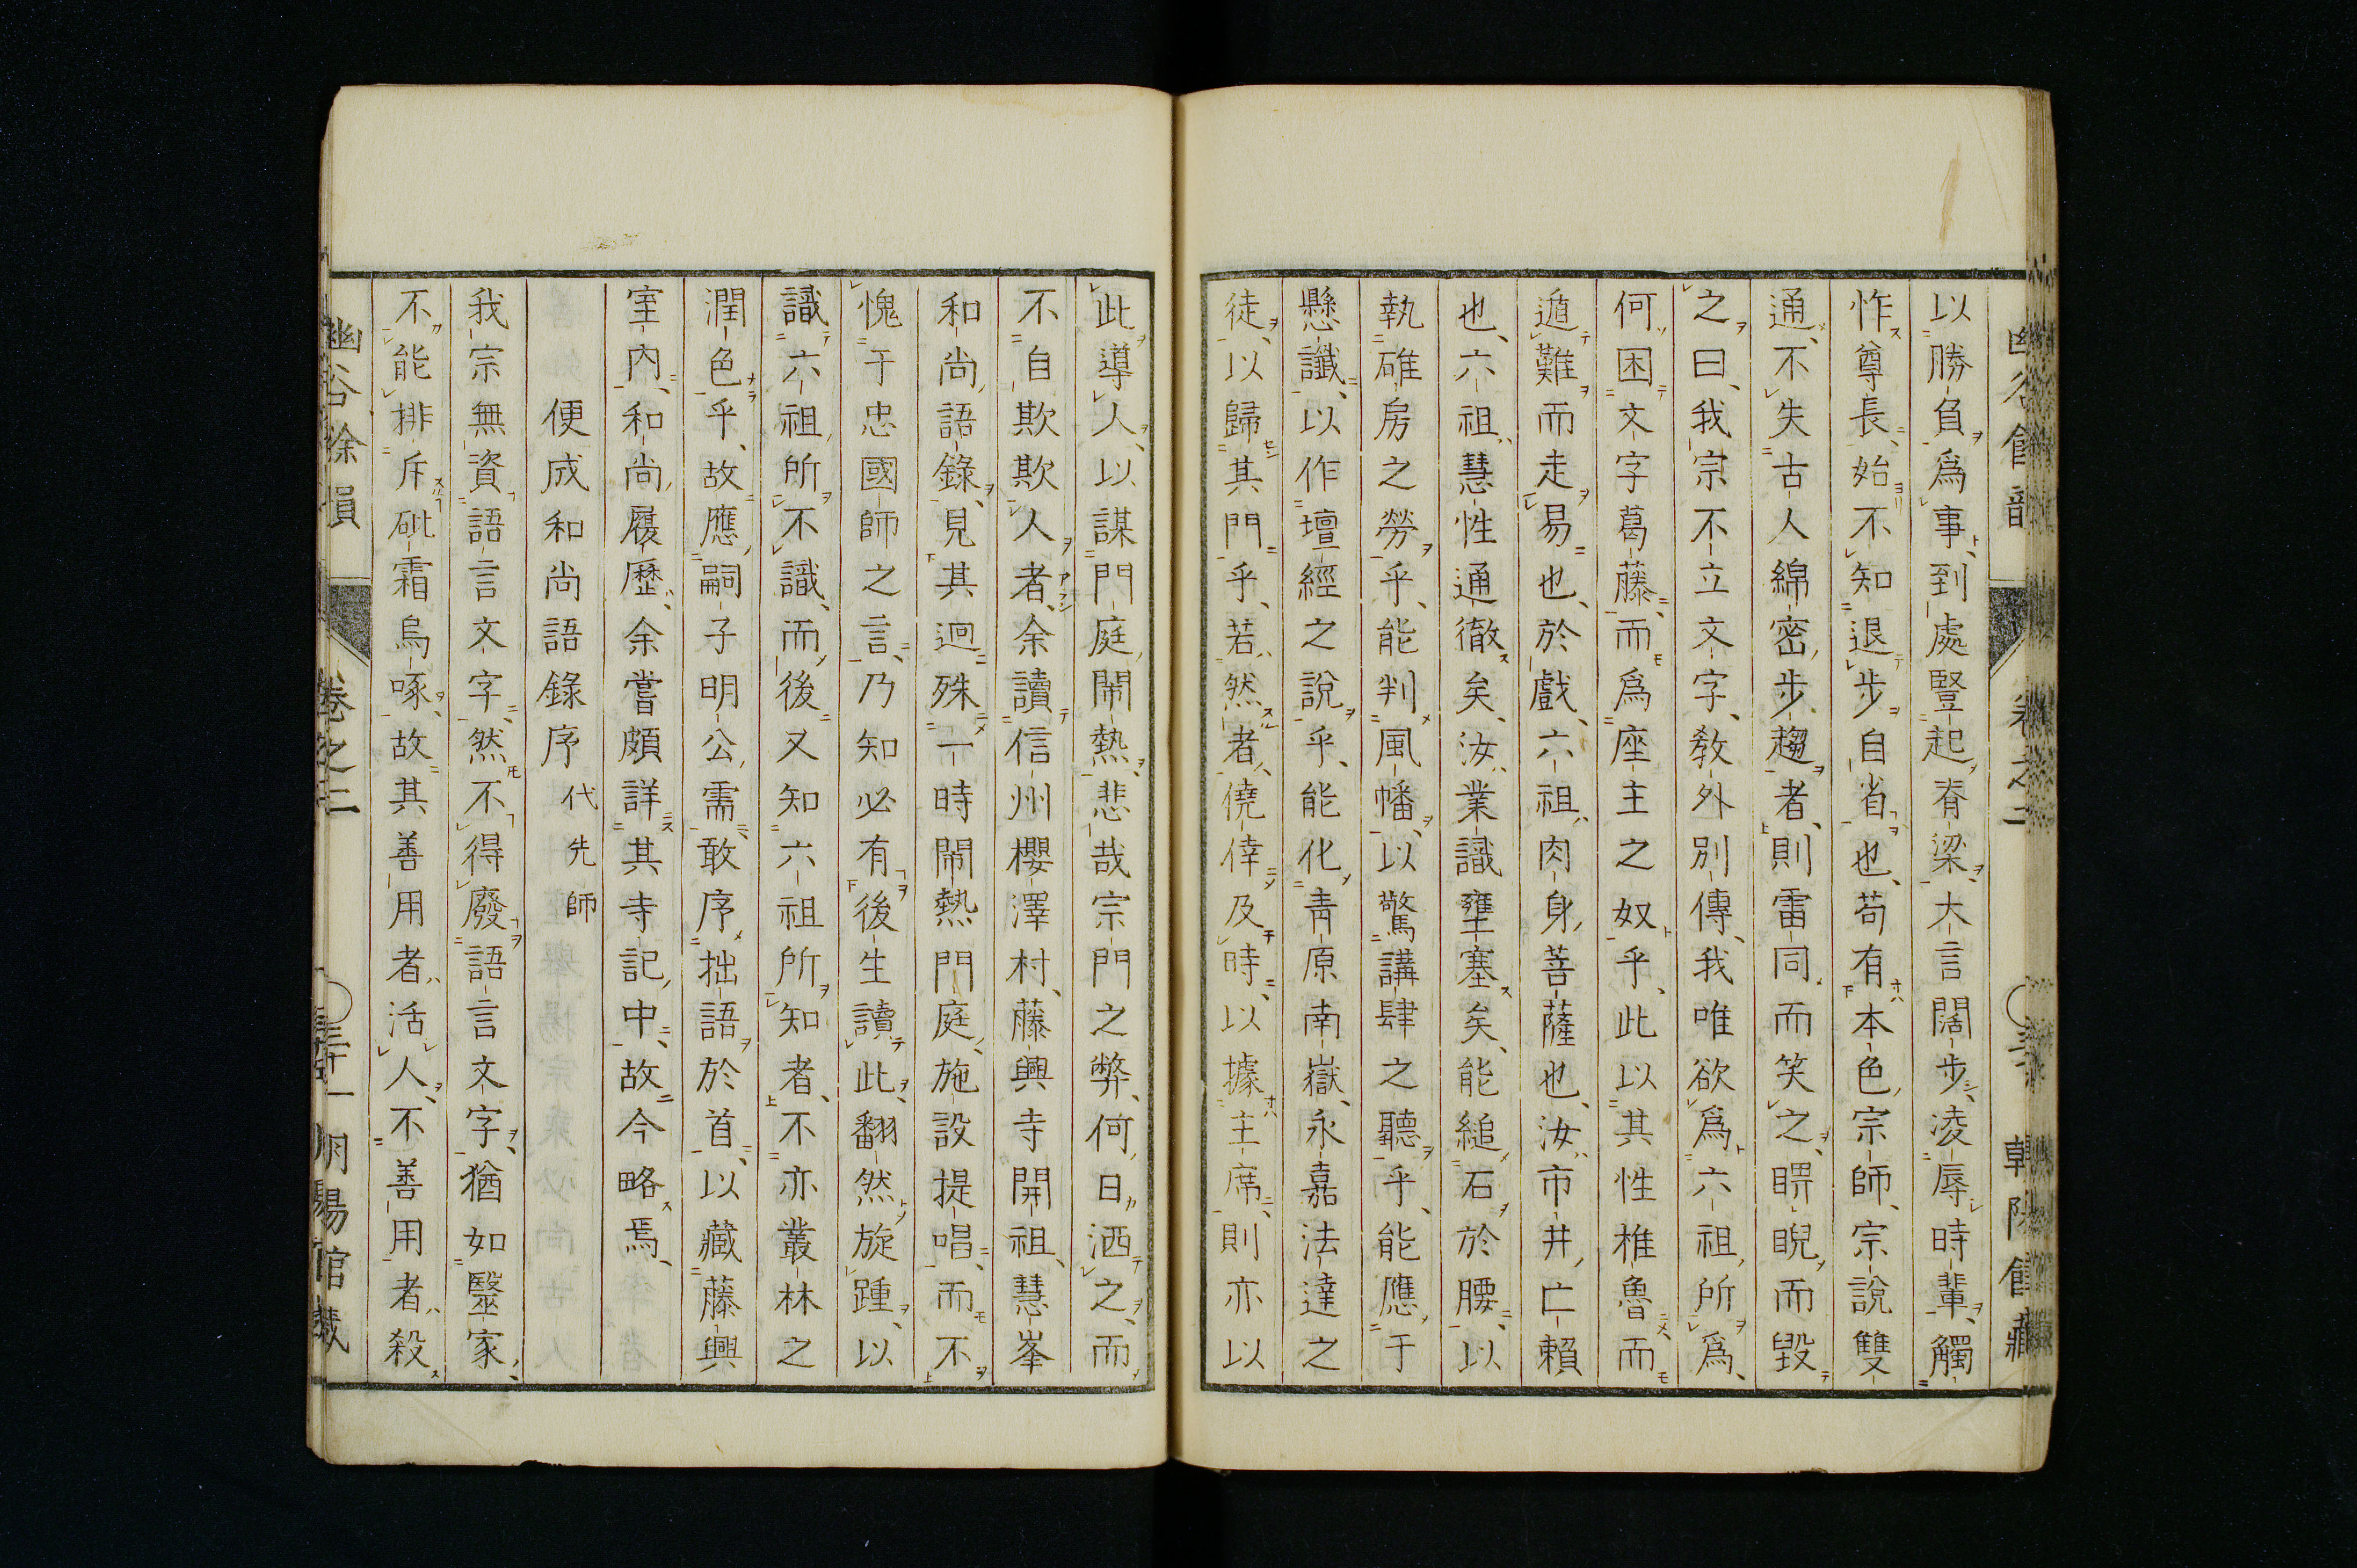 以勝負爲事、到處豎起脊梁、大言闊步、凌辱時輩、觸
怍尊長、始不知退步自省也、苟有本色宗師、宗說雙
通、不失古人綿密步趨者、則雷同而笑之、睤睨而毀
之曰、我宗不立文字、敎外別傳、我唯欲爲六祖所爲、
何困文字葛藤、而爲座主之奴乎、此以其性椎魯而
遁難而走易也、於戲、六祖肉身菩薩也、汝市井亡賴
也、六祖慧性通徹矣、汝業識壅塞矣、能縋石於腰、以
執碓房之勞乎、能判風幡、以驚講肆之聽乎、能應于
懸讖、以作壇經之說乎、能化靑原南嶽、永嘉法達之
徒、以歸其門乎、若然者、僥倖及時、以據主席、則亦以
此導人、以謀門庭鬧熱、悲哉宗門之弊、何日洒之、而
不自欺欺人者、余讀信州櫻澤村、藤興寺開祖、慧峯
和尚語錄、見其迥殊一時鬧熱門庭、施設提唱、而不
愧于忠國師之言、乃知必有後生讀此、翻然旋踵、以
識六祖所不識、而後又知六祖所知者、不亦叢林之
潤色乎、故應嗣子明公需、敢序拙語於首、以藏藤興
室內、和尚履歷、余嘗頗詳其寺記中、故今略焉、
便成和尚語錄序 代先師
我宗無資語言文字、然不得廢語言文字、猶如毉家、
不能排斥砒霜烏喙、故其善用者、活人、不善用者、殺
幽谷餘韻 卷之二 〇三十一 朝陽館藏